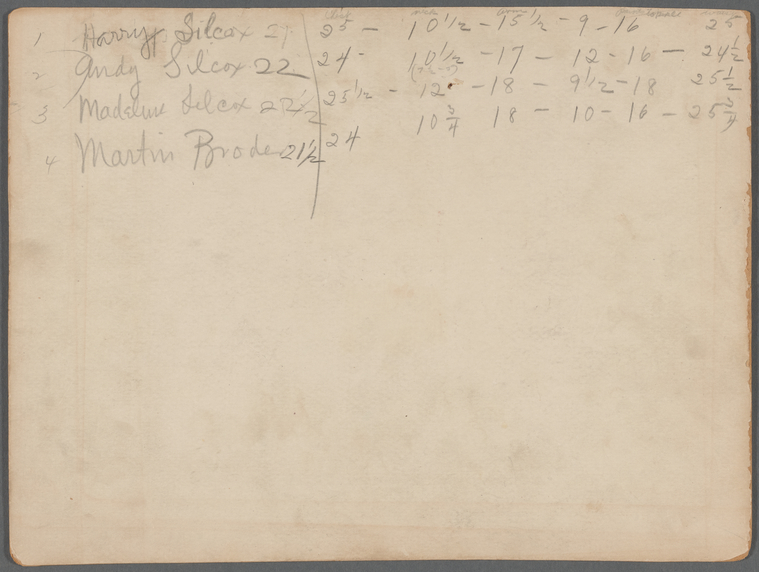 1 Harry Silcox 25 - 10 1/2 - 15 1/2 - 9 - 16 25
2 Andy Silcox 22 24 - 10 1/2 - 17 - 12 - 16 - 24 1/2
3 Madeline Silcox 22 1/2 25 1/2 - 12 - 18 - 9 1/2 - 18 25 1/2
4 Martin Broder 21 1/2 24 10 3/4 18 - 10 - 16 - 25 3/4